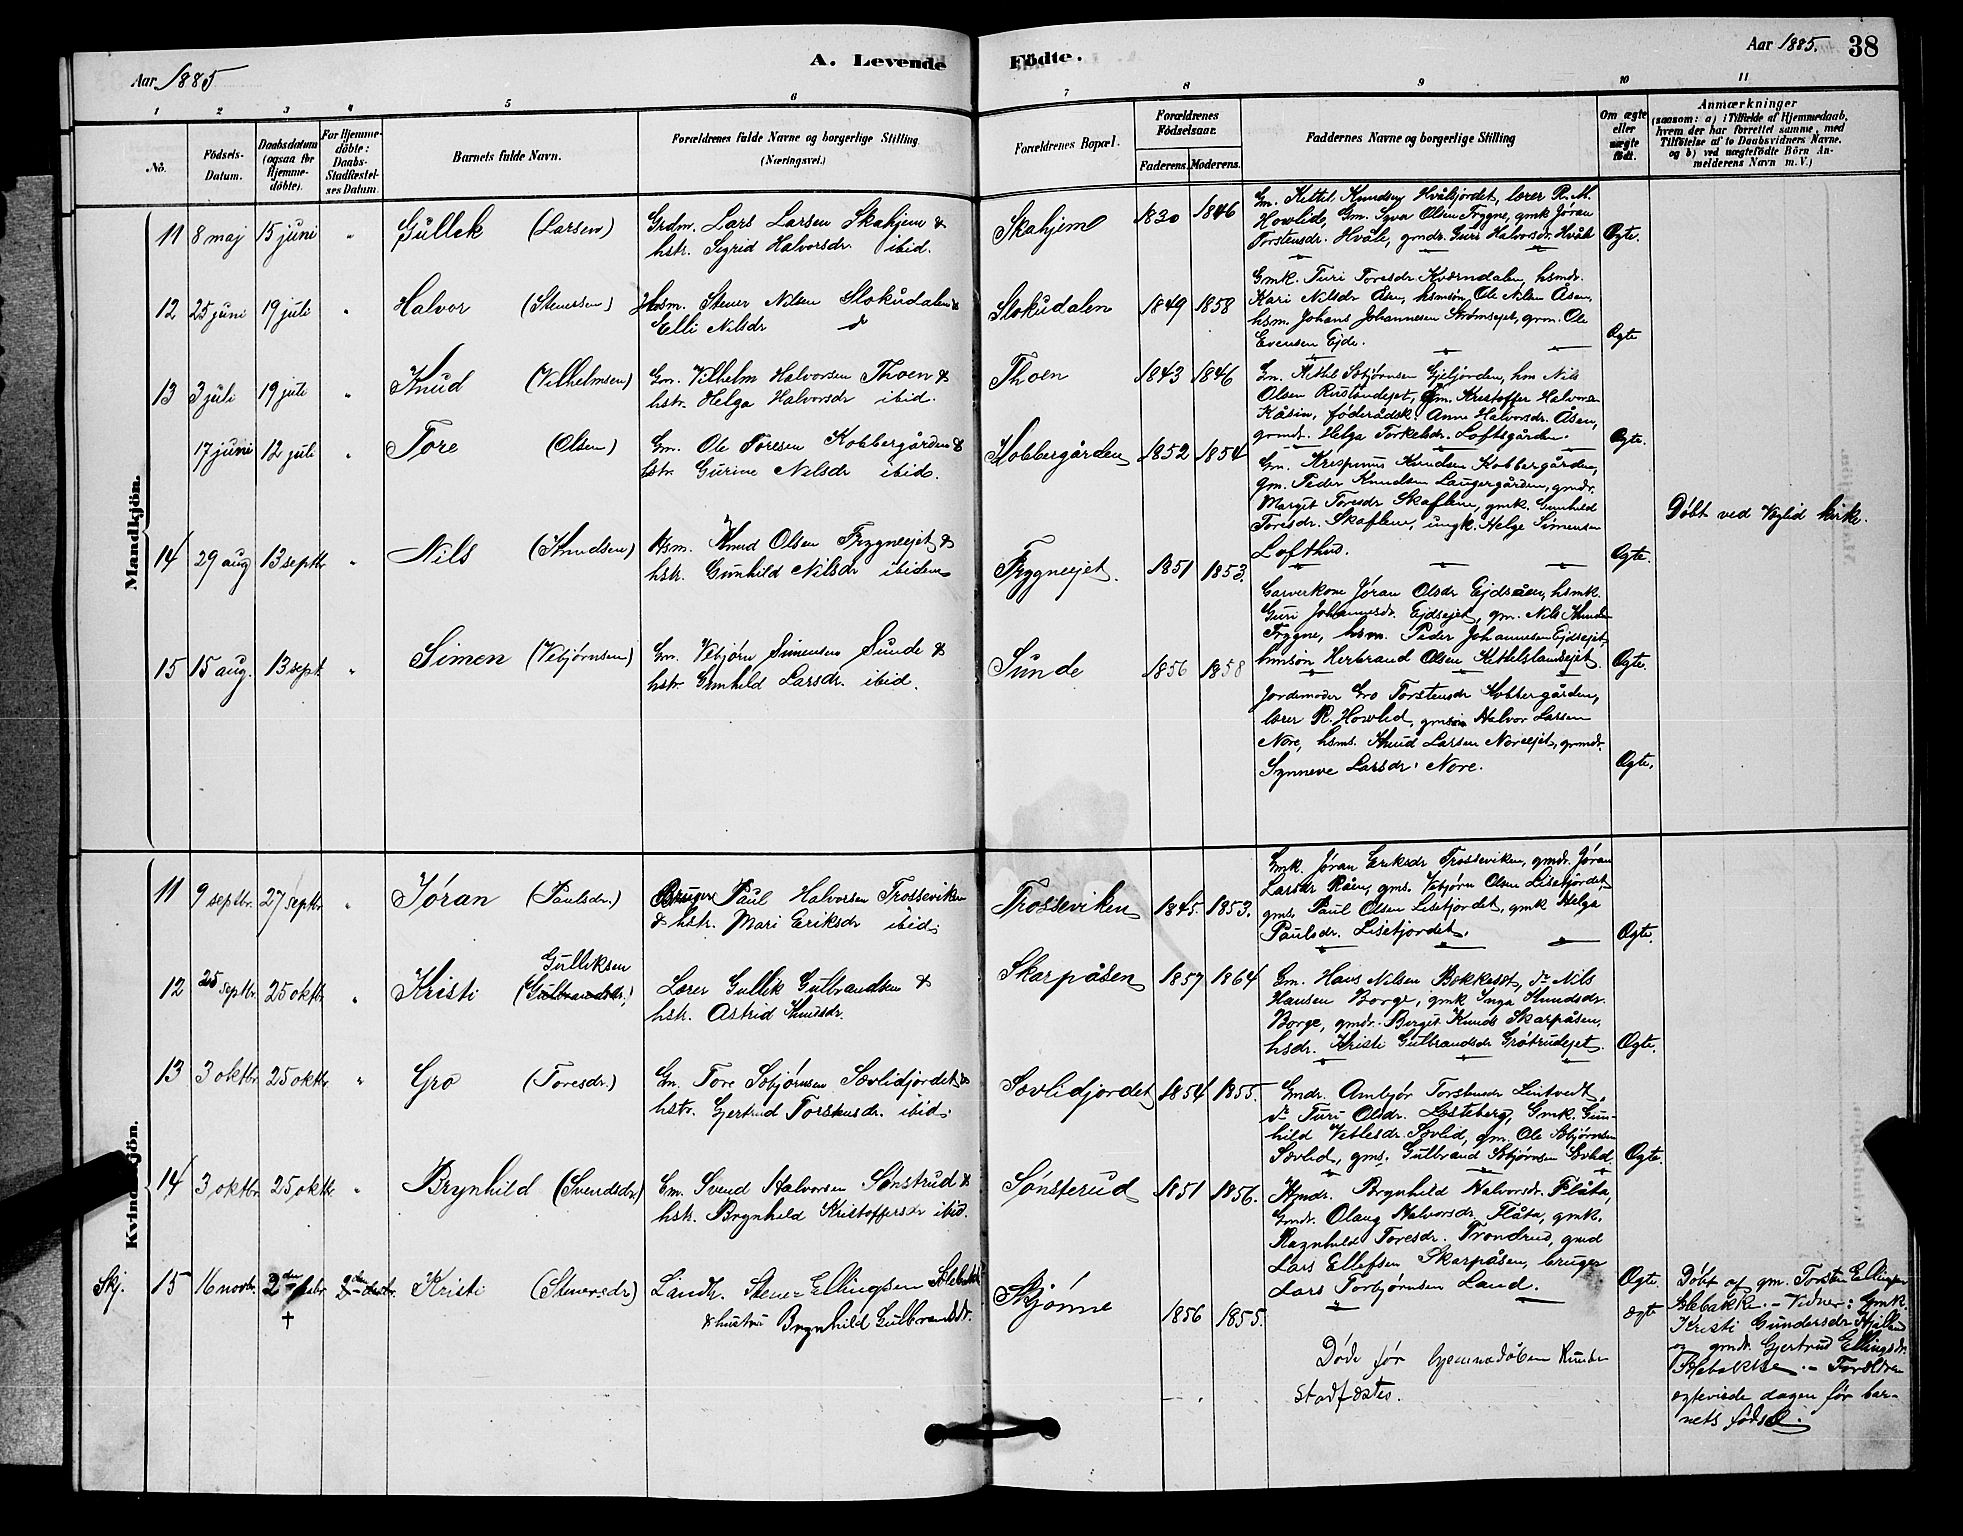 Aar 1885
A. Levende
Födte.
Aar 1885.
38
1 2 3 4 5 6 7 8 9 10 11
No.
Födsels-
Datum.
Daabsdatum
(ogsaa for
Hjemme-
döbte).
For Hjemme-
döbte:
Daabs-
Stadfæstel-
ses Datum.
Barnets fulde Navn.
Forældrenes fulde Navne og borgerlige Stilling
(Næringsvei.)
Forældrenes Bopæl.
Forældrenes
Födselsaar.
Faderens. Moderens.
Faddernes Navne og borgerlige Stilling
Om ægte
eller
uægte
födt.
Anmærkninger
(saasom: a) i Tilfælde af Hjemmedaab,
hvem der har forrettet samme, med
Tilföielse af to Daabsvidners Navne,
og b) ved uægtefödte Börn An-
melderens Navn m. V.)
Mandkjön.
11 8 maj 15 juni " Gullek (Larsen)
Grdm. Lars Larsen Skahjem &
hstr. Sigrid Halvorsdr. ibid.
Skahjem 1830 1846
Gm. Kittil Knudsen Hvålsjordet, lærer R. M.
Howlid, Gm. Syva Olsen Frygne, gmk Jóran
Torstensdr. Hvåle, gmdr. Guri Halvorsdr. Hvåle
Ægte.
12 25 juni 19 juli " Halvor (Stenersen)
Husm. Stener Nilsen Slokudalen &
Elli Nilsdr do
Slokudalen 1849 1858
Gmk. Turi Toresdr. Kværndalen, hsmdr.
Kari Nilsdr Åsen, hsmsön Ole Nilsen Åsen,
hsm. Johans Johannesen Strömsejet, grm. Ole
Evensen Ejde.
Ægte
13 3 juli 19 juli " Knud (Vilhelmsen)
Gm. Vilhelm Halvorsen Thoen &
hstr. Helga Halvorsdr ibid.
Thoen 1843 1846
Gm. Kittil Sebjørnsen Gjeljorden, hm Nils
Olsen Rustandejet, Gm. Kristoffer Halvorsen
Kåsin, föderådsk. Anne Halvorsdr. Åsen,
grmdr. Helga Torkelsdr. Loftsgården.
Ægte.
17 juni 12 juli " Tore (Olsen)
Gm. Ole Toresen Kobbergården &
hstr. Gurine Nilsdr ibid.
Kobbergården 1852 1854
Gm. Krispinus Knudsen Kobbergården,
gm. Peder Knudsen Laugergården, gmdr.
Margit Toresdr Skaflem, gmk. Gunhild
Toresdr. Skaflem, ungk. Helge Simensen
Lofthus.
Ægte.
Döbt ved Veglid kirke.
14 29 aug 13 septbr " Nils (Knudsen)
Hsm. Knud Olsen Frygneejet &
hstr. Gunhild Nilsdr ibidem
Frygneejet. 1851 1853.
Garverkone Jóran Olsdr Ejdsåen, hsmk.
Guri Johannesdr Ejdsejet, gm. Nils Knudsen
Frygne, hsm. Peder Johannesen Ejdsejet,
hmsön Herbrand Olsen Kittelslandsejet
Ægte.
15 15 aug. 13 sept. " Simen (Vebjørnsen)
Gm. Vebjörn Simensen Sunde &
hstr. Gunhild Larsdr. ibid.
Sunde 1856 1858
Jordemoder Gro Torstensdr Kobbergården,
lærer R. Howlid, gmsön Halvor Larsen
Nore, hsms. Knud Larsen Noreejet, grmdr.
Synneve Larsdr. Nore.
Ægte.
Kvindekjön.
11 9 septbr. 27 septbr. " Jóran (Paulsdr.)
Bruger Paul Halvorsen Trosseviken
& hstr. Mari Eriksdr ibid.
Trosseviken 1845. 1853.
Gmk. Jóran Eriksdr Trosseviken, gmdr. Jóran
Larsdr Råen, gms. Vebjörn Olsen Lisetjordet,
gms. Paul Olsen Lisetjordet, gmk Helga
Paulsdr. Lisetjordet.
Ægte.
12 25 septbr. 25 oktbr. " Kristi (Gulbrandsdr.) Gulliksen
Lærer Gullik Gulbrandsen &
hstr. Astrid Knudsdr.
Skarpåsen 1857 1864
Gm. Hans Nilsen Bakketet, do Nils
Hansen Borge, gmk Inga Knudsdr.
Borge, gmdr. Berget Knuds Skarpåsen,
hsdr. Kristi Gulbrandsdr Grötrudejet.
Ægte.
13 3 oktbr. 25 oktbr. " Gro (Toresdr.)
Gm. Tore Sebjørnsen Sævlidjordet &
hstr. Gjertrud Torstensdr. ibid.
Sævlidjordet 1854 1855.
Gmdr. Ambjør Torstensdr Lintvedt,
do Turi Olsdr. Løsteberg, Gmk. Gun-
hild Vetlesdr. Sævlid, gm. Ole Sebjørnsen
Sævlid, gms. Gulbrand Sebjørnsen Sævlid.
Ægte.
14 3 oktbr. 25 oktbr. " Brynhild (Svendsdr.)
Gm. Svend Halvorsen Sønstrud &
hstr. Brynhild Kristoffersdr ibid.
Sønsterud 1851 1856.
Hmdr. Brynhild Halvorsdr Flåta,
Gmdr. Olaug Halvorsdr Flåta, gmk.
Ragnhild Toresdr. Trondrud, gmd
Lars Ellefsen Skarpåsen, bruger
Lars Torbjørnsen Land.
Ægte.
Skj. 15 16 novbr. 2den decbr. 2den decbr. Kristi (Stenersdr)
†
Landh. Stener Ellingsen Alebakke
& hustru Brynhild Gulbrandsdr.
Skjønne 1856 1855.
ægte
Döde før hjemmedåben kunde
stadfæstes.
Döbt af gm. Torsten Ellingsen
Alebakke. – Vidner: Gmk.
Kristi Gundersdr Hjelland
og gmdr. Gjertrud Ellingsdr.
Alebakke. – Forældrene
ægteviede dagen før bar-
nets fødsel.